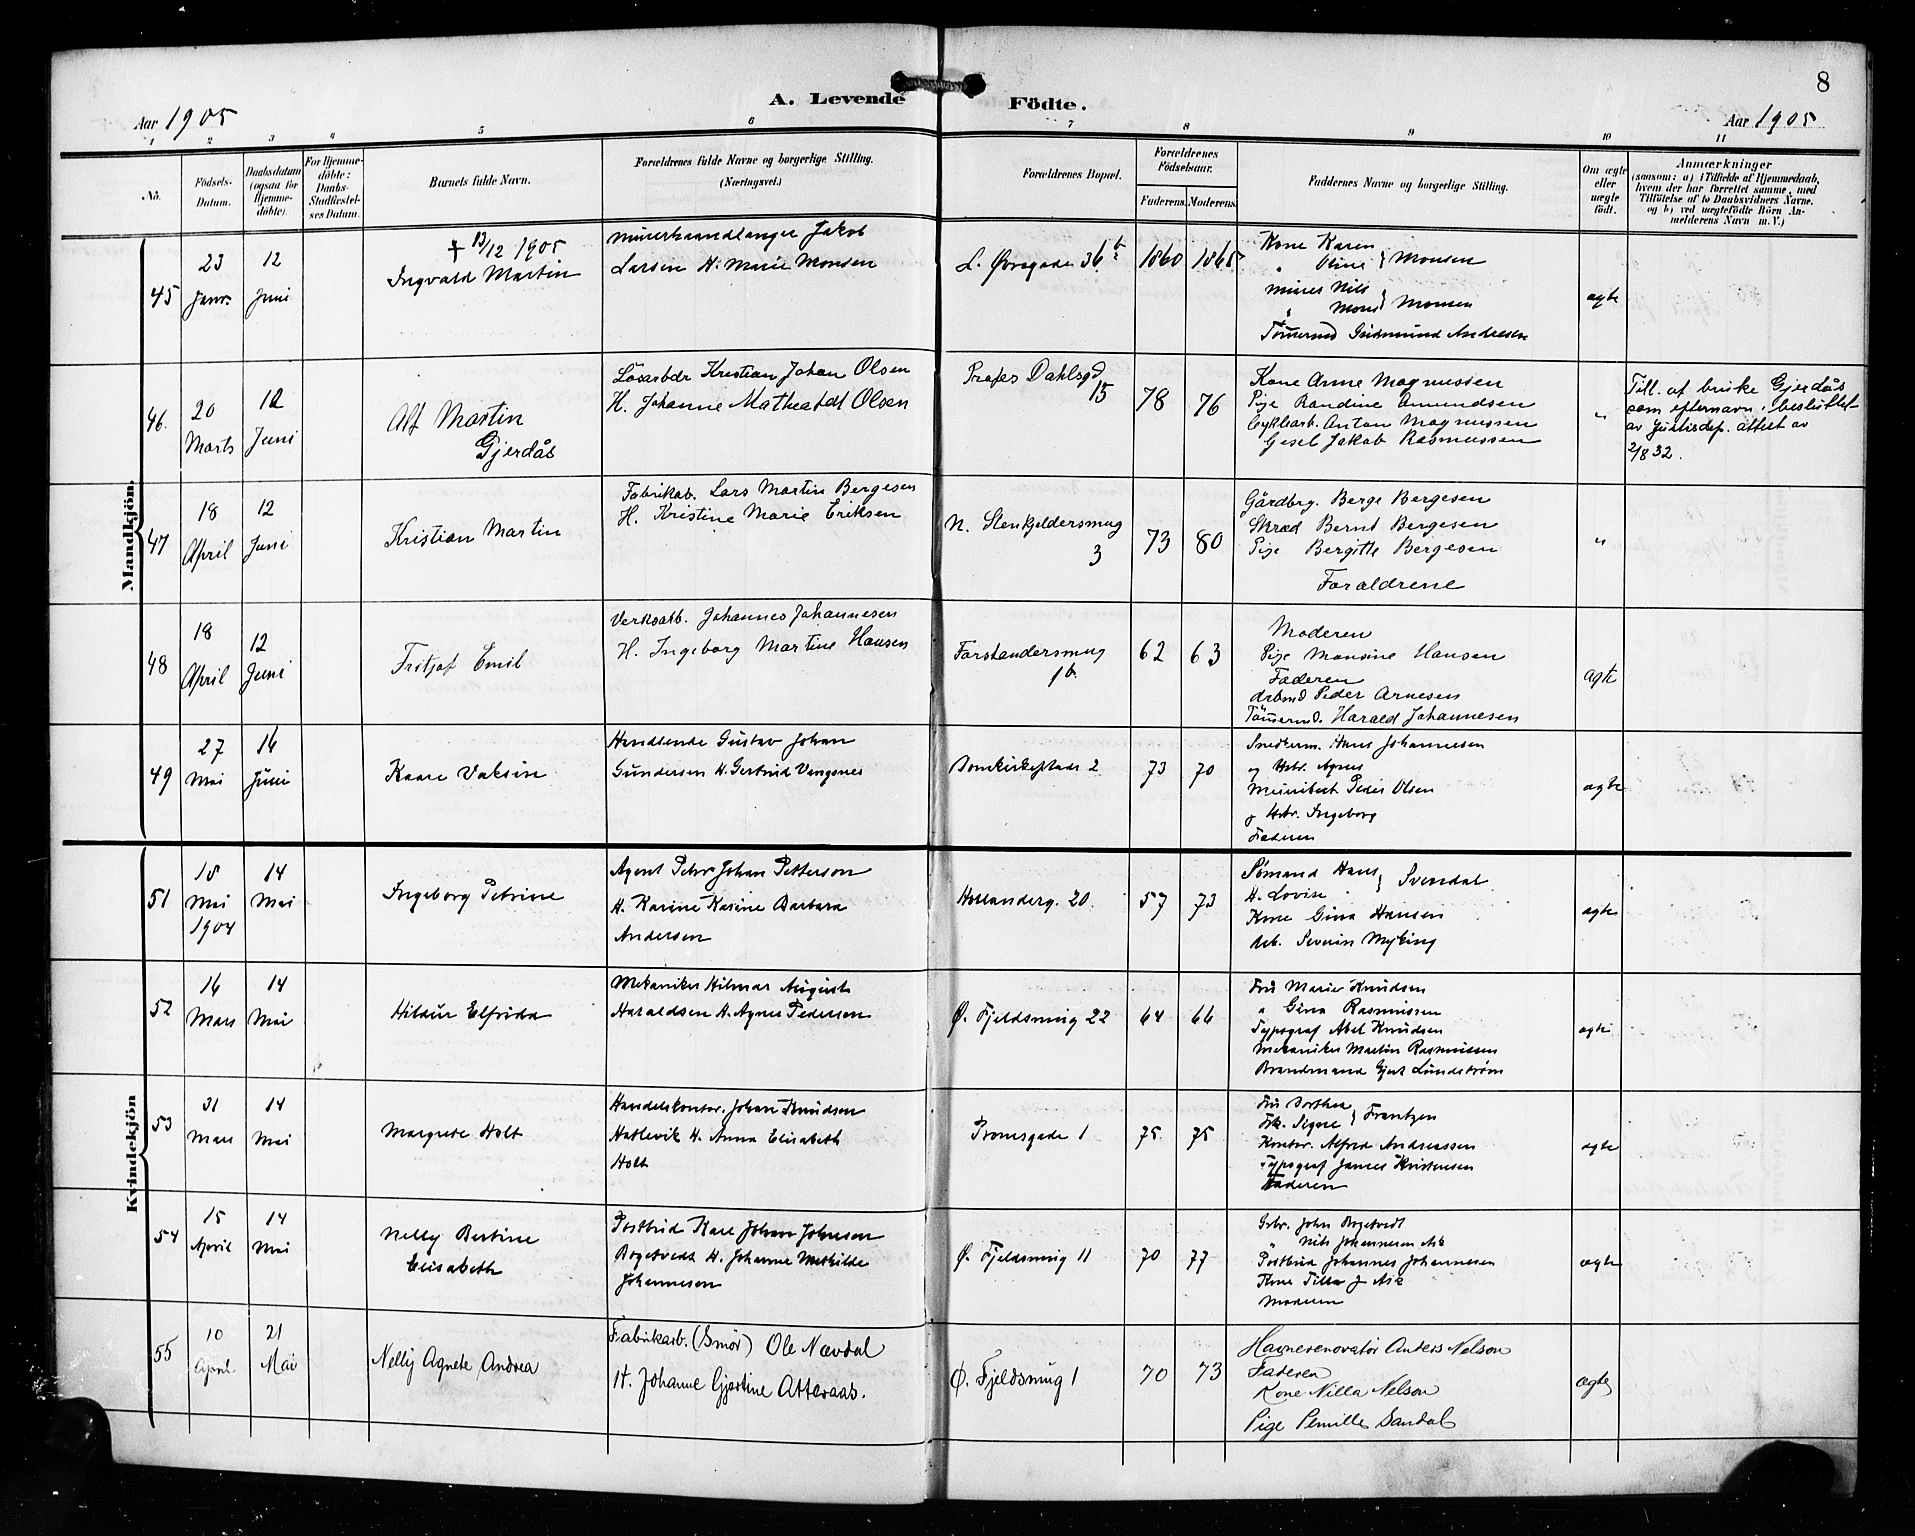 8
A. Levende Födte.
Aar 1905
Aar 1905
1 2 3 4 5 6 7 8 9 10 11
No.
Födsels-Datum.
Daabsdatum (ogsaa for Hjemme-döbte).
For Hjemme-döbte: Daabs-Stadfæstel-ses Datum.
Barnets fulde Navn.
Forældrenes fulde Navne og borgerlige Stilling. (Næringsvei.)
Forældrenes Bopæl.
Forældrenes Födselsaar.
Faderens. Moderens.
Faddernes Navne og borgerlige Stilling.
Om ægte eller uægte født.
Anmærkninger
(saasom: a) i Tilfælde af Hjemmedaab,
hvem der har forrettet samme, med
Tilføielse af to Daabsvidners Navne.
og b) ved uægtefödte Börn An-
melderens Navn m. V.)
Mandkjön.
45
23 Janr.
12 Juni
+ 13/12 1905
Ingvald Martin
Murerhaandlanger Jakob
Larsen H. Marie Monsen
L. Øvregade 36
1860 1865
Kone Karen
" Oline } Monsen
Murer Nils
" Mons } Monsen
Tømmermd Gudmund Andersen
ægte
46.
20 Marts
12 Juni
Alf Martin
Gjerdås
Løsarbdr Kristian Johan Olsen
H. Johanne Matheatdt Olsen
Profes Dahlsgd
15
78 76
Kone Anne Magnussen
Pige Randine Amundsen
Cyklearb. Anton Magnussen
Gesel Jakob Rasmussen
"
Till. at bruke Gjerdås
som efternavn, besluttet
av Justisdep. attest av
2/8 32.
47
18 April
12 Juni
Kristian Martin
Fabrikab. Lars Martin Bergesen
H. Kristine Marie Eriksen
N. Stenkjeldersmug
3
73 80
Gårdbrg. Berge Bergesen
Skræd Bernt Bergesen
Pige Bergitte Bergesen
Foraldrene
"
48
18 April
12 Juni
Fritjof Emil
Verksarb. Johannes Johannesen
H. Ingeborg Martine Hansen
Forstandersmug
1b.
62 63
Moderen
Pige Monsine Hansen
Faderen
Arbmd Peder Arnesen
Tömmermd. Harald Johannesen
ægte
49
27 Mai
16 Juni
Kaare Valsin
Handlende Gustav Johan
Gundersen H. Gertrud Vangsnes
Domkirkeplads 2
73 70
Snedkerm. Hans Johannesen
og Hstr. Agnes
Peder Olsen
og Hstr. Ingeborg
Faderen
ægte
Kvindekjön
51
15 Mai 1904
14 Mai
Ingeborg Petrine
Agent Peter Johan Petterson
H. Karine Kasine Barbara
Andersen
Hollenderg. 20.
57 73
Sömand Hans
H. Lovise } Svendal
Kone Gina Hansen
Arb. Severin Myking
ægte
52
16 Mars
14 Mai
Hildur Elfrida
Mekaniker Hilmar August
Haraldsen H. Agnes Pedersen
Ø. Fjeldsmug 22
64 66
Fru Marie Knudsen
" Gina Rasmussen
Typograf Abel Knudsen
Mekaniker Martin Rasmussen
Brandmand Gjert Lundström
ægte
53
31 Mars
14 Mai
Margrete Holt
Handelskontor. Johan Knudsen
Hatlevik H. Anna Elisabeth
Holt
Promsgade 1
75 75
Fru Dorthea
Frk. Signe } Frantzen
Kontor. Alfred Andreassen
Typograf James Kristensen
Faderen
ægte
54
15 April
14 Mai
Nelly Bertine
Elisabeth
Postbud Karl Johan Johnsen
Bogetvedt H. Johanne Mathilde
Johannesen
Ø. Fjeldsmug 11
70 77
Gbr. John Bogetvedt
" Nils Johannesen Ask
Postbud Johannes Johannesen
Kone Tilla J. Ask
Moderen
ægte
55
10 April
21 Mai
Nelly Agnete Andrea
Fabrikarb. (Smør) Ole Nævdal
H. Johanne Gjertine Atteraas.
Ø. Fjeldsmug 1
70 73
Havnerenovatør Anders Nelson
Faderen
Kone Nilla Nelson
Pige Pernille Sandal
ægte